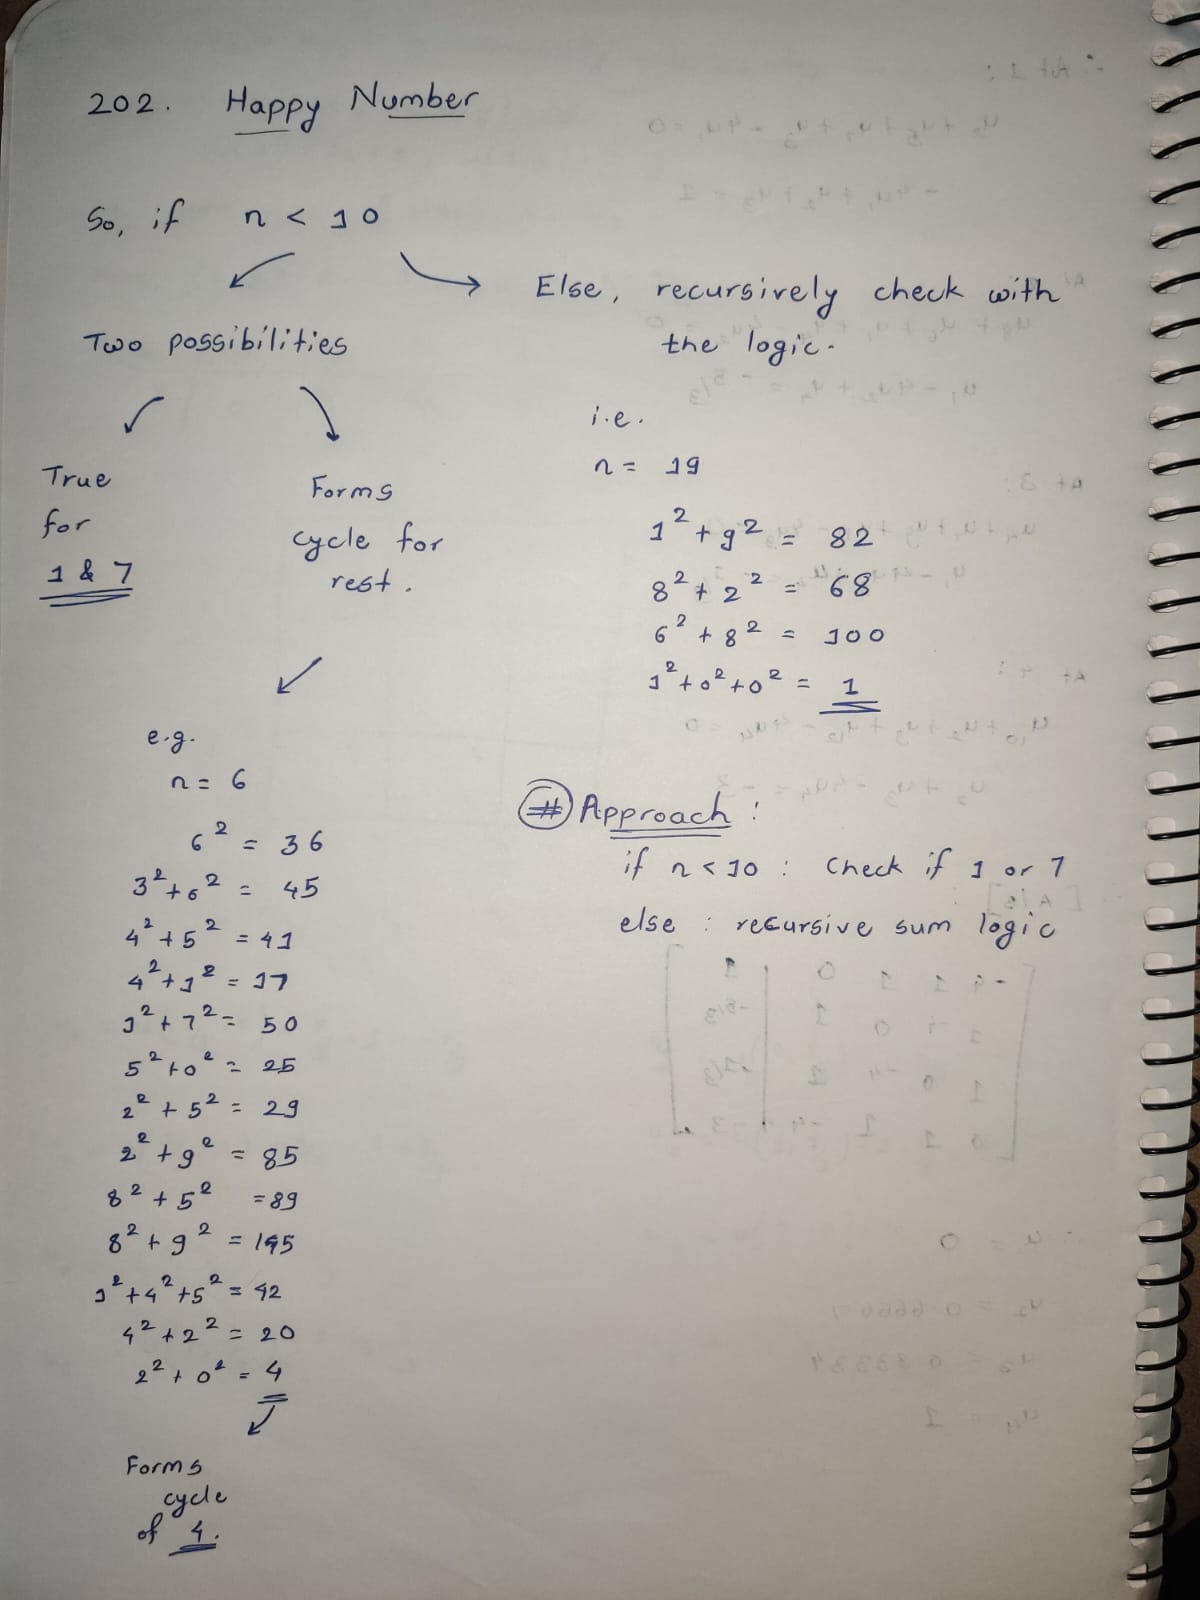 202. Happy Number
So, if n < 10
Two possibilities
True
for
1 & 7
Forms
cycle for
rest.
e.g.
n = 6
6² = 36
3² + 6² = 45
4² + 5² = 41
4² + 1² = 17
1² + 7² = 50
5² + 0² = 25
2² + 5² = 29
2² + 9² = 85
8² + 5² = 89
8² + 9² = 145
1² + 4² + 5² = 42
4² + 2² = 20
2² + 0² = 4
Forms
cycle
of 4.
Else, recursively check with
the logic.
i.e.
n = 19
1² + 9² = 82
8² + 2² = 68
6² + 8² = 100
1² + 0² + 0² = 1
# Approach :
if n < 10 : Check if 1 or 7
else : recursive sum logic